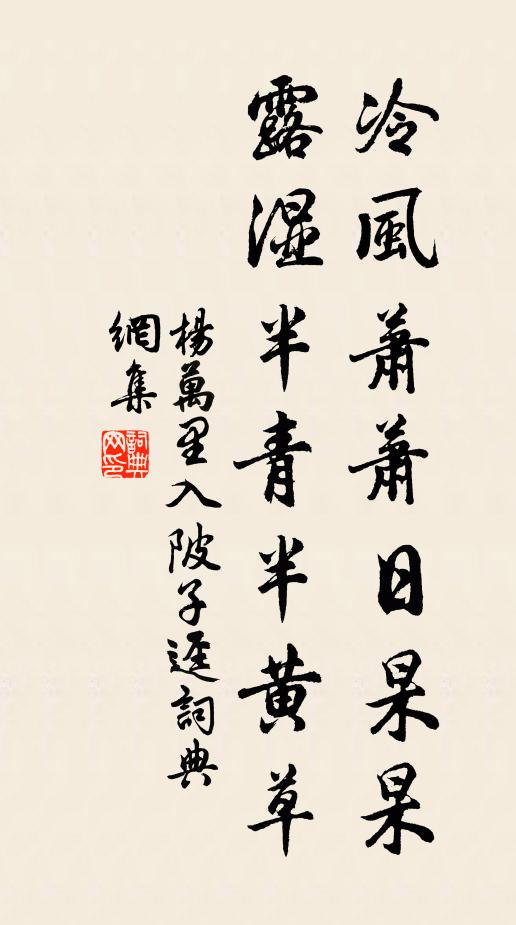 冷風蕭蕭日杲杲
露湿半青半黄草
楊萬里入陂子逕詞典
網集
詞典网印